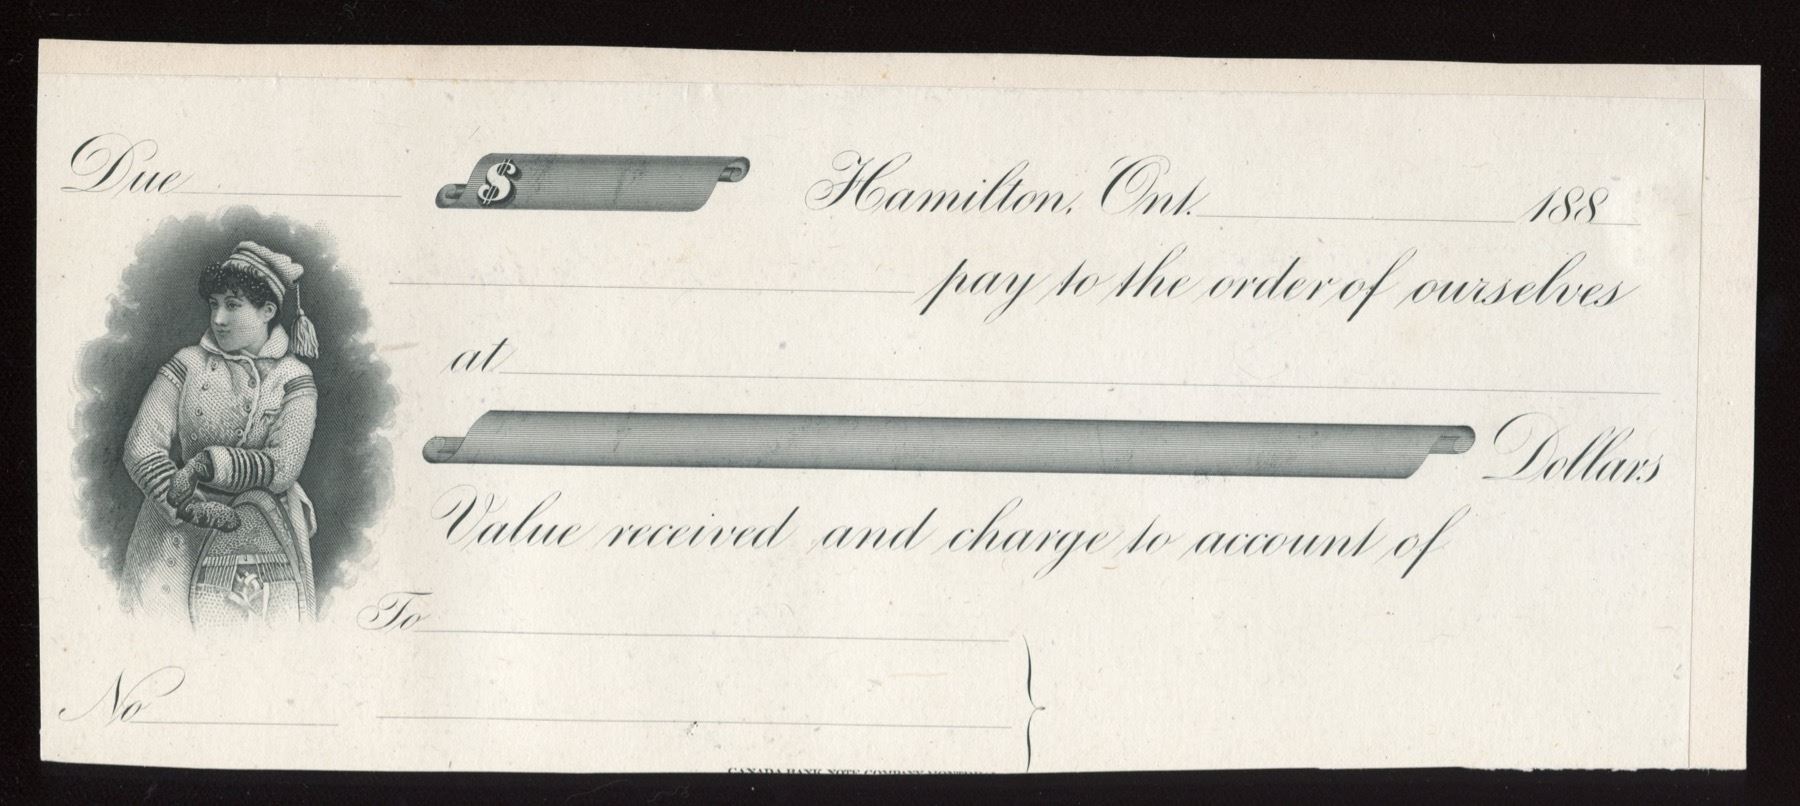 Due $ Hamilton, Ont. 188
pay to the order of ourselves
at
Dollars
Value received and charge to account of
To
No
CANADA BANK NOTE COMPANY MONTREAL